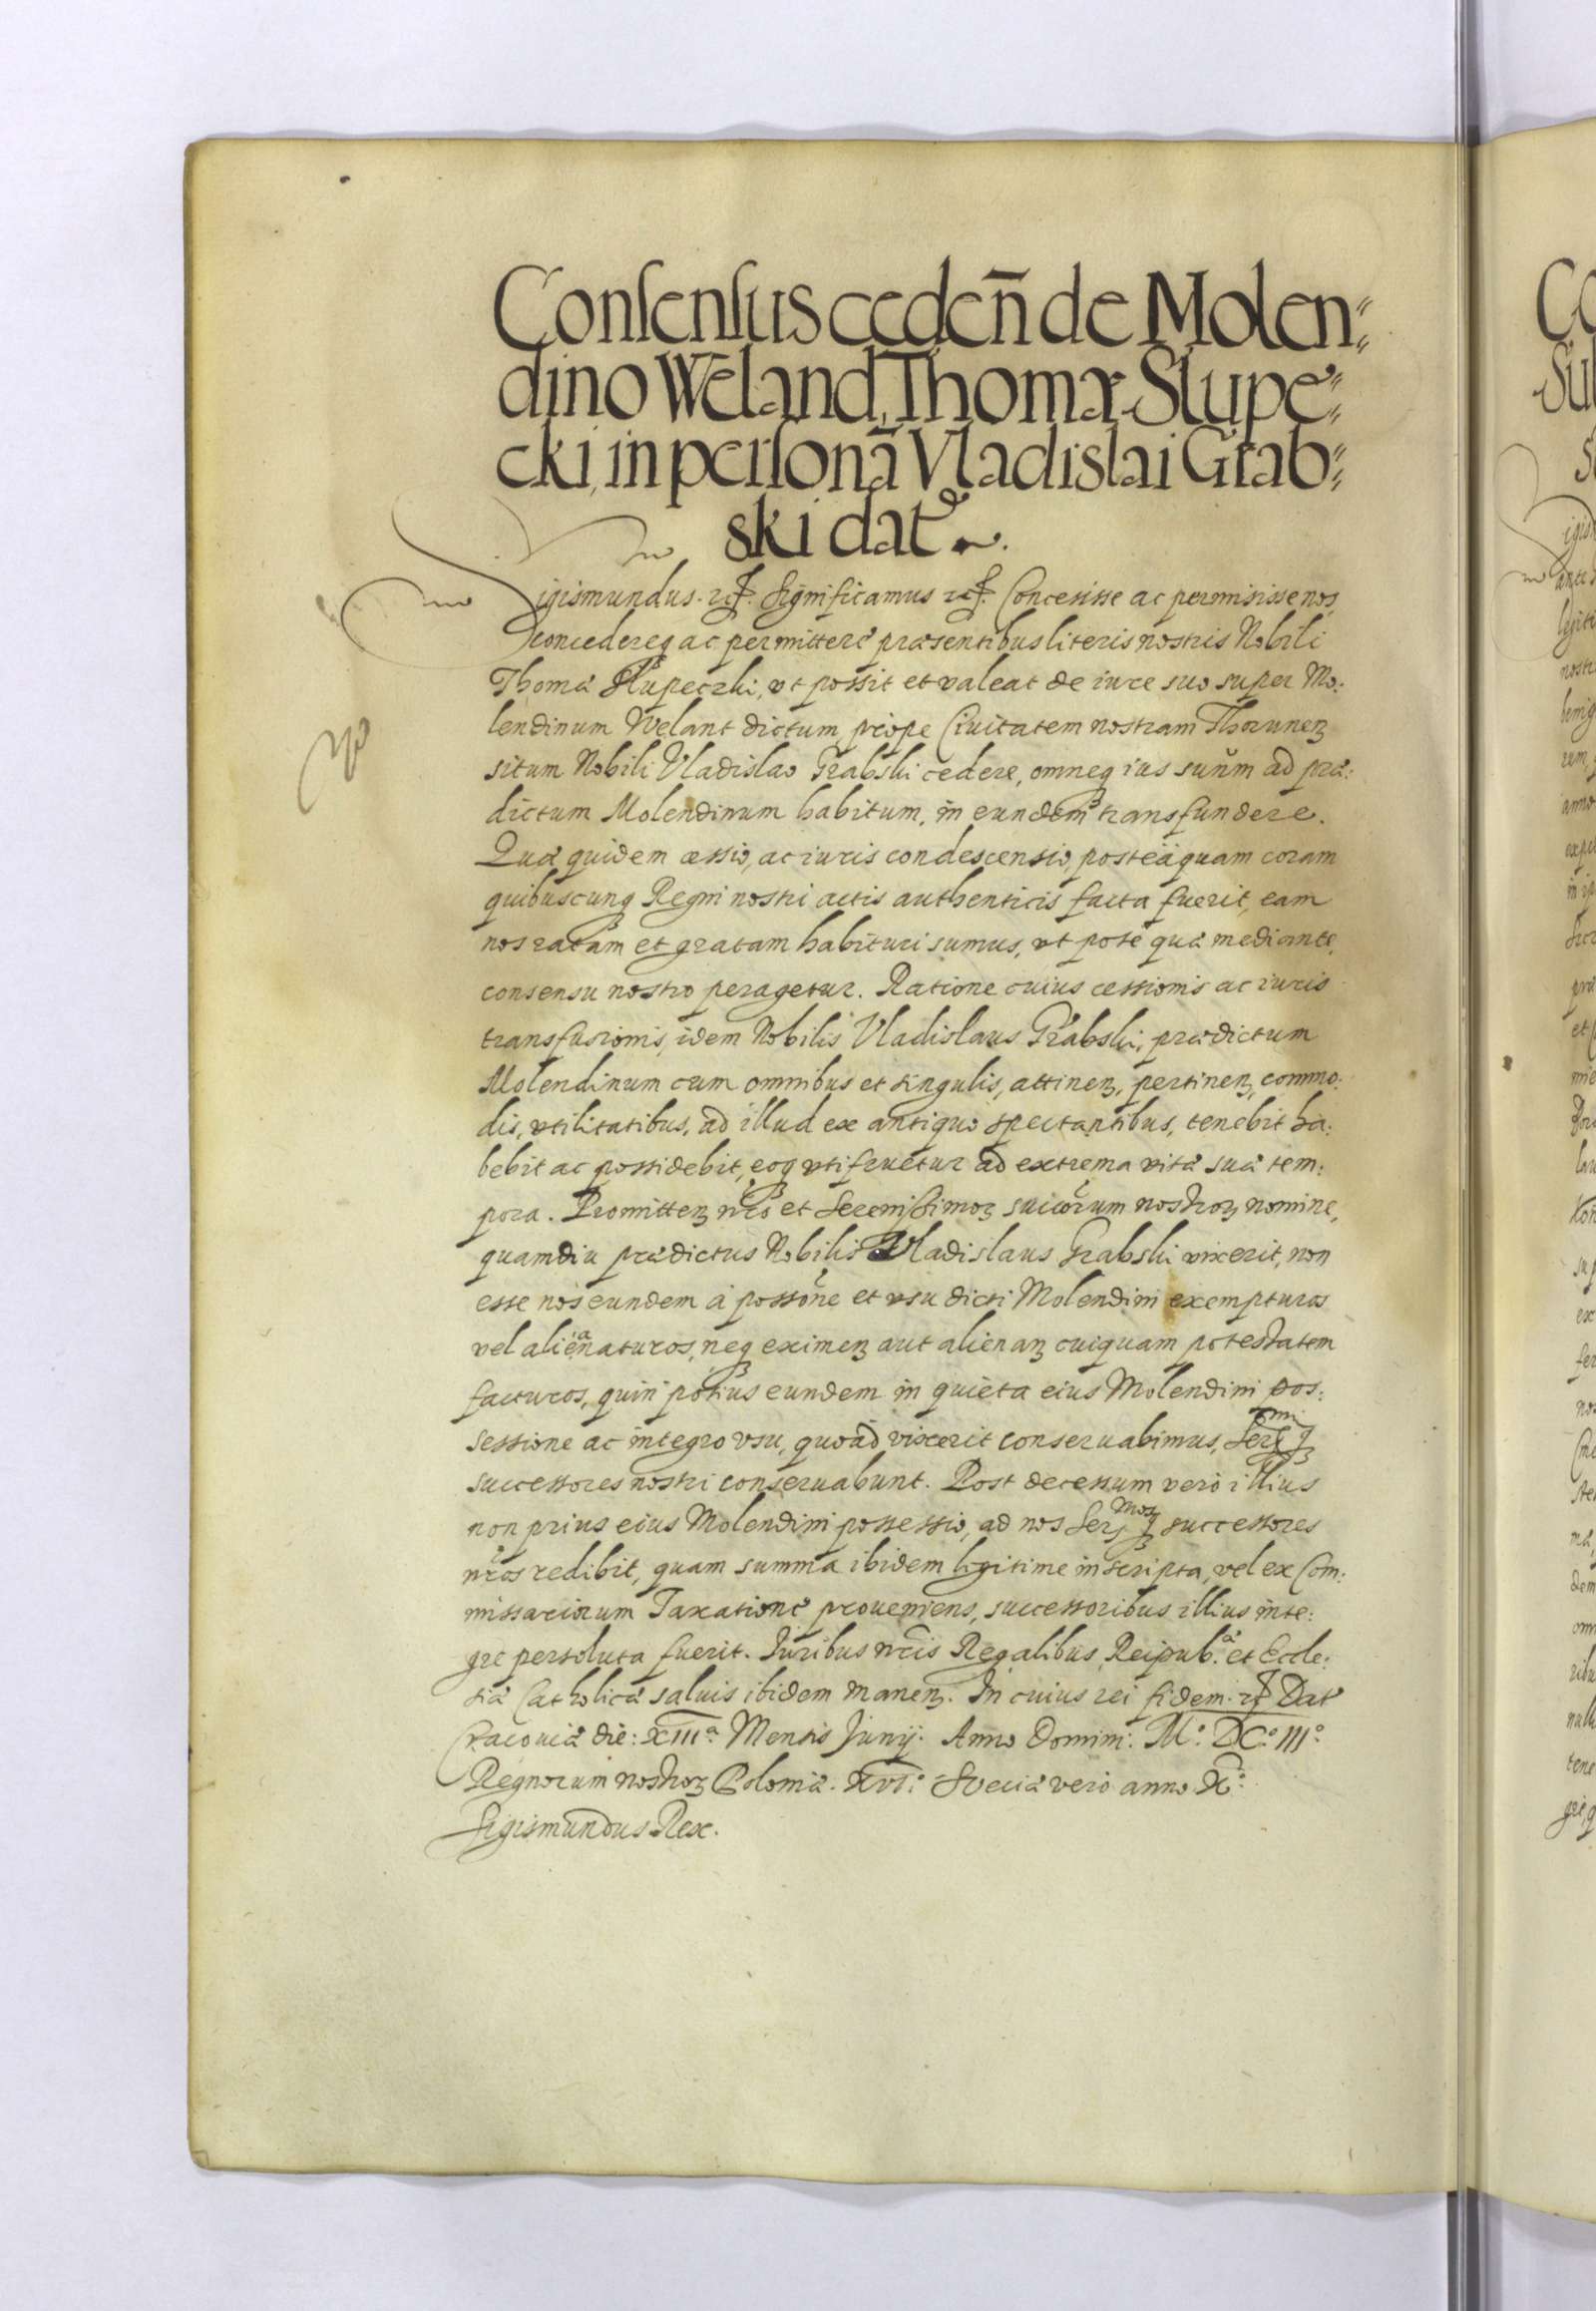 Consensus ceden̄ de Molen:
dino Weland, Thomæ Slupe:
cki, in personā Vladislai Grab:
ski dat.
Sigismundus. etc. Significamus etc. Concessisse ac permisisse nos,
concedereq ac permittere præsentibus literis nostris Nobili
Thomæ Slupeczki, vt possit et valeat de iure suo super Mo:
lendinum Welant dictum, prope Ciuitatem nostram Thorunen
situm Nobili Vladislao Grabski cedere, omneq ius suum ad præ:
dictum Molendinum habitum, in eundem transfundere.
Quæ quidem cessio, ac iuris condescensio, posteaquam coram
quibuscunq Regni nostri actis authenticis facta fuerit, eam
nos ratam et gratam habituri sumus, vt pote quæ mediante
consensu nostro peragetur. Ratione cuius cessionis ac iuris
transfusionis, idem Nobilis Vladislaus Grabski, prædictum
Molendinum cum omnibus et singulis, attinen, pertinen, commo:
dis, vtilitatibus, ad illud ex antiquo spectantibus, tenebit ha:
bebit ac possidebit, eoq vtifruetur ad extrema vitæ suæ tem:
pora. Promitten nro et Serenissimor succorum nostror nomine,
quamdiu prædictus Nobilis Vladislaus Grabski vixerit, non
esse nos eundem à possōne et vsu dicti Molendini exempturos
vel alienaturos, neq eximen aut alienan cuiquam potestatem
facturos, quin potius eundem in quieta eius Molendini pos:
sessione ac integro vsu, quoad vixerit conseruabimus, Sermi q
successores nostri conseruabunt. Post decessum vero illius
non prius eius Molendini possessio, ad nos Sermos q successores
nros redibit, quam summa ibidem ligitime inscripta, vel ex Com:
missariorum Taxatione proueniens, successoribus illius inte:
gre persoluta fuerit. Iuribus nris Regalibus, Reipub.æ et Eccle:
siæ Catholicæ saluis ibidem manen. In cuius rei fidem. etc Dat
Cracouiæ die: XIII.a Mensis Junij. Anno Domini. M.o DC.o III.o
Regnorum nostror Poloniæ. XVI.o Sueciæ vero anno X.o
Sigismundus Rex.